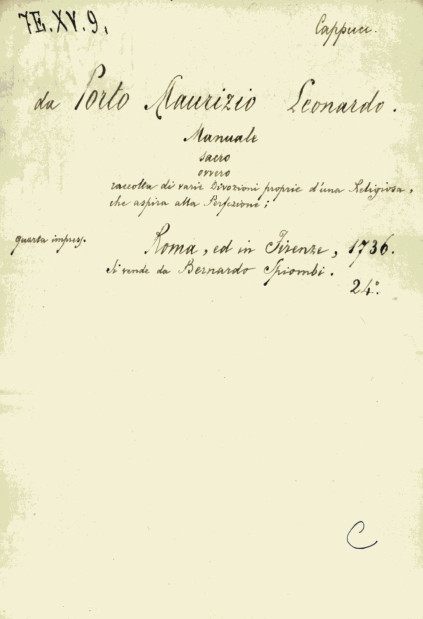 7E.XV.9,
Cappucc.
da Porto Maurizio Leonardo.
Manuale
sacro
ovvero
raccolta di varie Divozioni proprie d'una Religiosa,
che aspira alla Perfezione;
quarta impres.
Roma, ed in Firenze, 1736.
Si vende da Bernardo Spiombi.
24.º
C